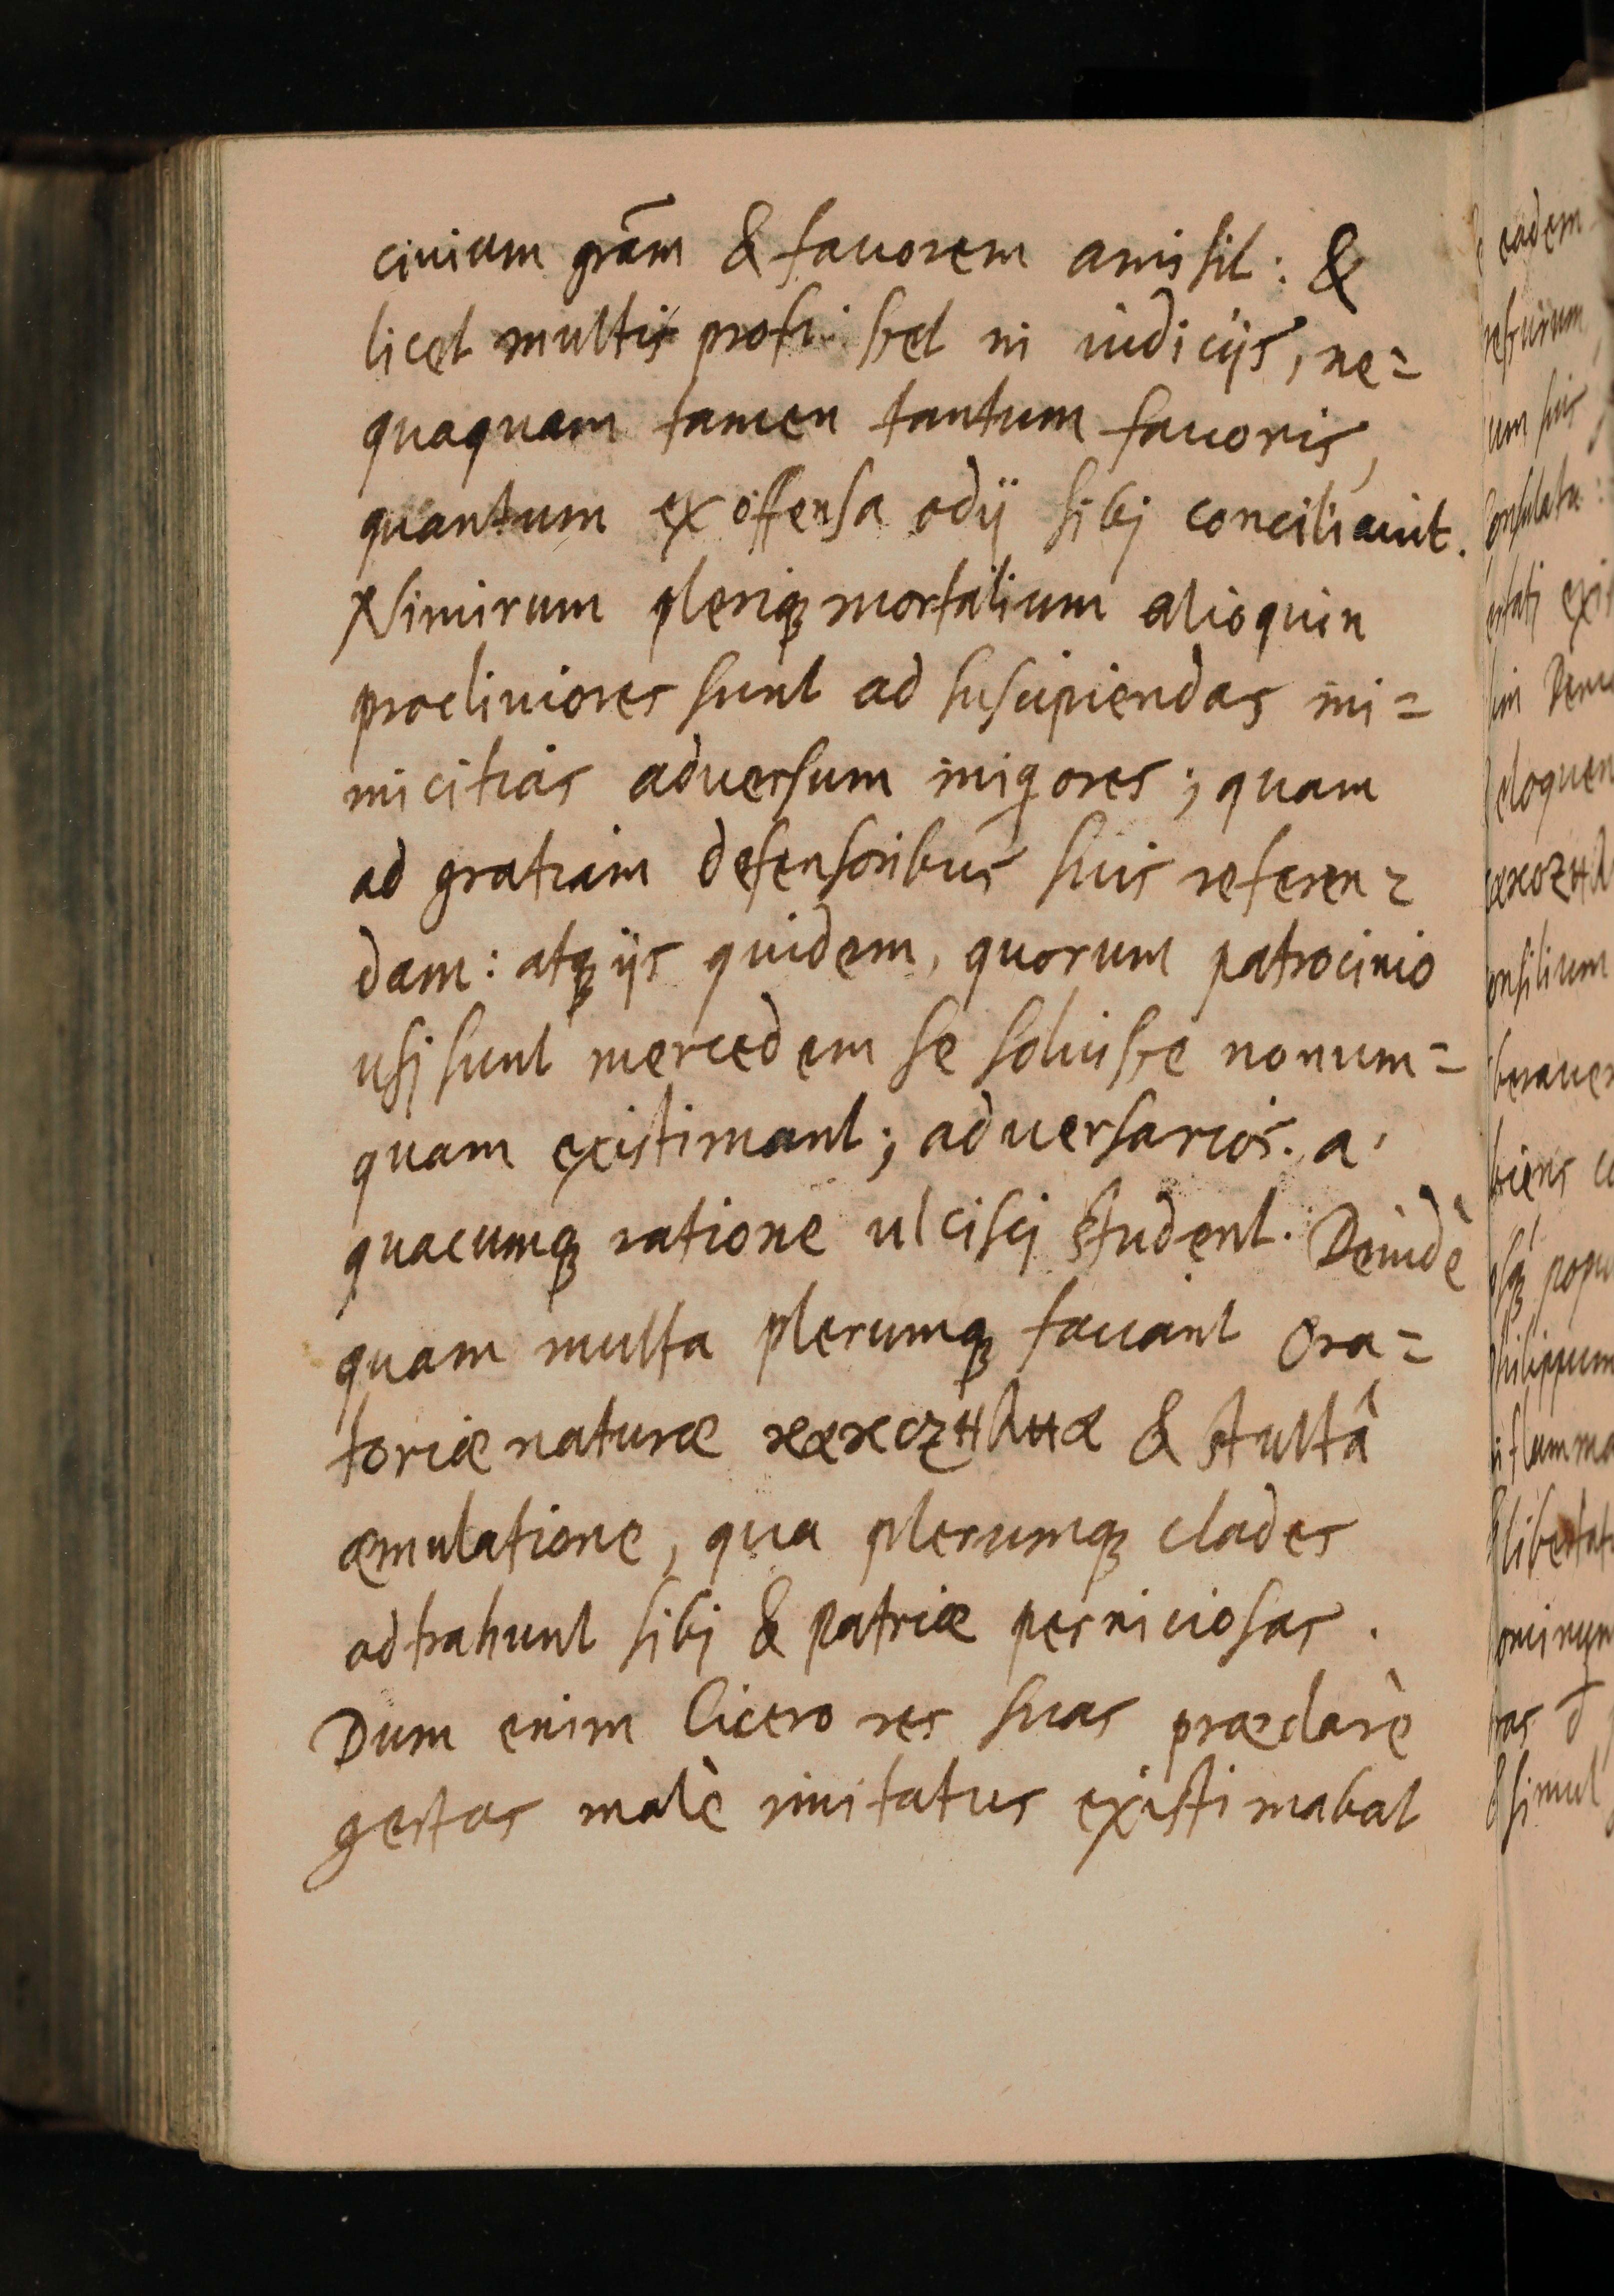 ciuium grãm & fauorem amisit: &
licet multis profuisset in iudicijs, ne=
quaquam tamen tantum fauoris,
quantum ex offensa odij sibj conciliauit.
Nimirum pleriq mortalium alioquin
procliuiores sunt ad suscipiendas ini=
micitias aduersum iniq̢ores; quam
ad gratiam defensoribus suis referen=
dam: atq ijs quidem, quorum patrocinio
usj sunt mercedem se soluisse nonum=
quam existimant; aduersarios. a
quacumq ratione ulciscj student. Deindè
quam multa plerumq faciant Ora=
toriæ naturæ κακοζηλια & stultâ
æmulatione, qua plerumq clades
adtrahunt sibj & patriæ perniciosas.
Dum enim Cicero res suas præclarè
gestas malè imitatus existimabat
eadem
um suis
Consulatu:
eloquen
onsilium
popu
Philippum
inflamma
& libertat
& simul